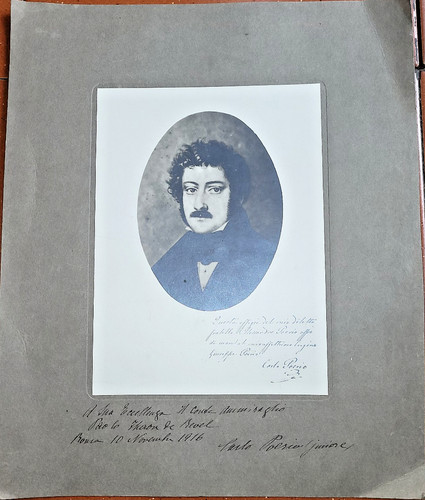 Questa effigie del mio diletto
fratello Alessandro Poerio
Giuseppe Poerio
Carlo Poerio
A Sua Eccellenza Il Conte Ammiraglio
Paolo Thaon de Revel
Roma 10 Novembre 1916 Carlo Poerio juniore